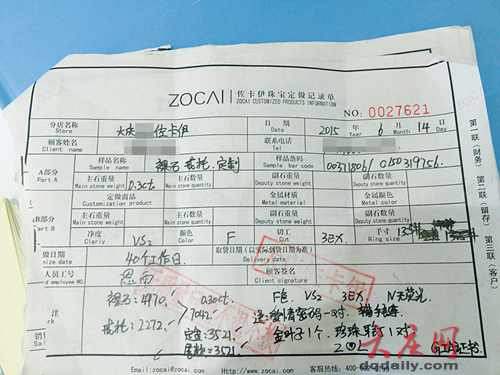 ZOCAI 佐卡伊珠宝定做记录单
ZOCAI CUSTOMIZED PRODUCTS INFORMATION
NO: 0027621
分店名称 Store 大庆 佐卡伊 日期 Date 2015 年 Year 6 月 Month 14 日 Day
顾客姓名 Client name 联系电话 Tel
A部分 Part A 样品名称 Sample name 裸石 戒托.定制 样品条码 Sample bar code
主石重量 Main stone weight 0.3ct 主石数量 副石重量 Deputy stone weight 副石数量
定做商品 Customization product 金属材料
B部分 Part B 主石重量 Main stone weight 主石数量 副石重量 Deputy stone weight 副石数量
净度 Clarity VS2 颜色 Color F 切工 Cut 3EX 手寸 Ring size
做日期 size date 40个工作日 取货日期(以实际到货日期为准) Delivery date
人员工号 employee NO. 顾客签名 Client signature
裸石:4970 0.30ct F色 VS2 3EX N无荧光
戒托:2272 7042
定金:3521 金叶子1个 珍珠耳钉1对
尾款:3521 GIA证书
Email:zocai@zocai.com http://www.zocai.com 客服热线:400-
大庆网
dqdaily.com
第一联(财务) 第二联(留存) 第三联(客户)